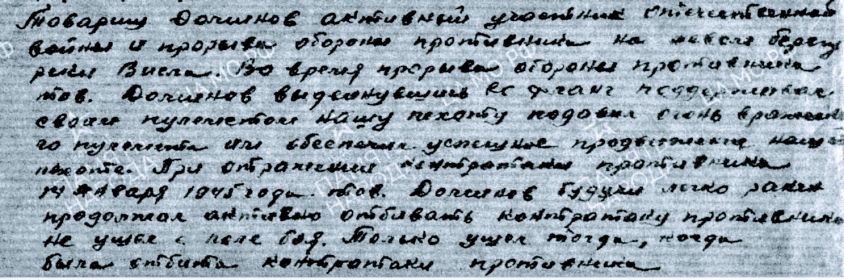 Товарищ Дочинов активный участник отечественной
войны и прорыва обороны противника на левом берегу
реки Висла. Во время прорыва обороны противника
тов. Дочинов выдвинувшись во фланг поддерживал
своим пулеметом нашу пехоту подавил огонь вражеско
го пулемета и обеспечил успешное продвижение нашей
пехоте. При отражении контратаки противника
14 января 1945 года тов. Дочинов будучи легко ранен
продолжал активно отбивать контратаку противника
не ушел с поле боя. Только ушел тогда, когда
была отбита контратака противника